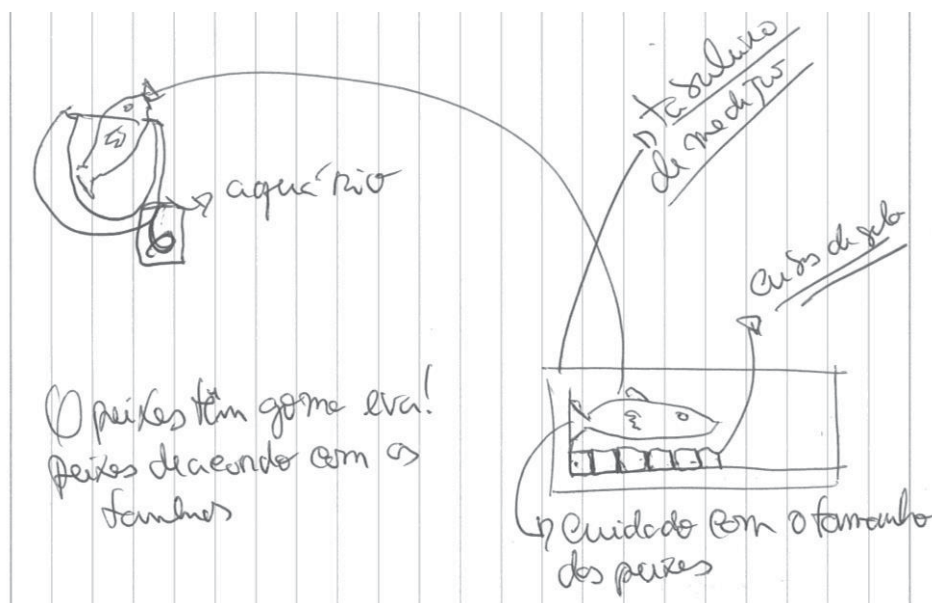 tabuleiro
de medição
aquário
cubos de gelo
O peixes têm goma eva!
peixes de acordo com os
tamanhos
cuidado com o tamanho
dos peixes